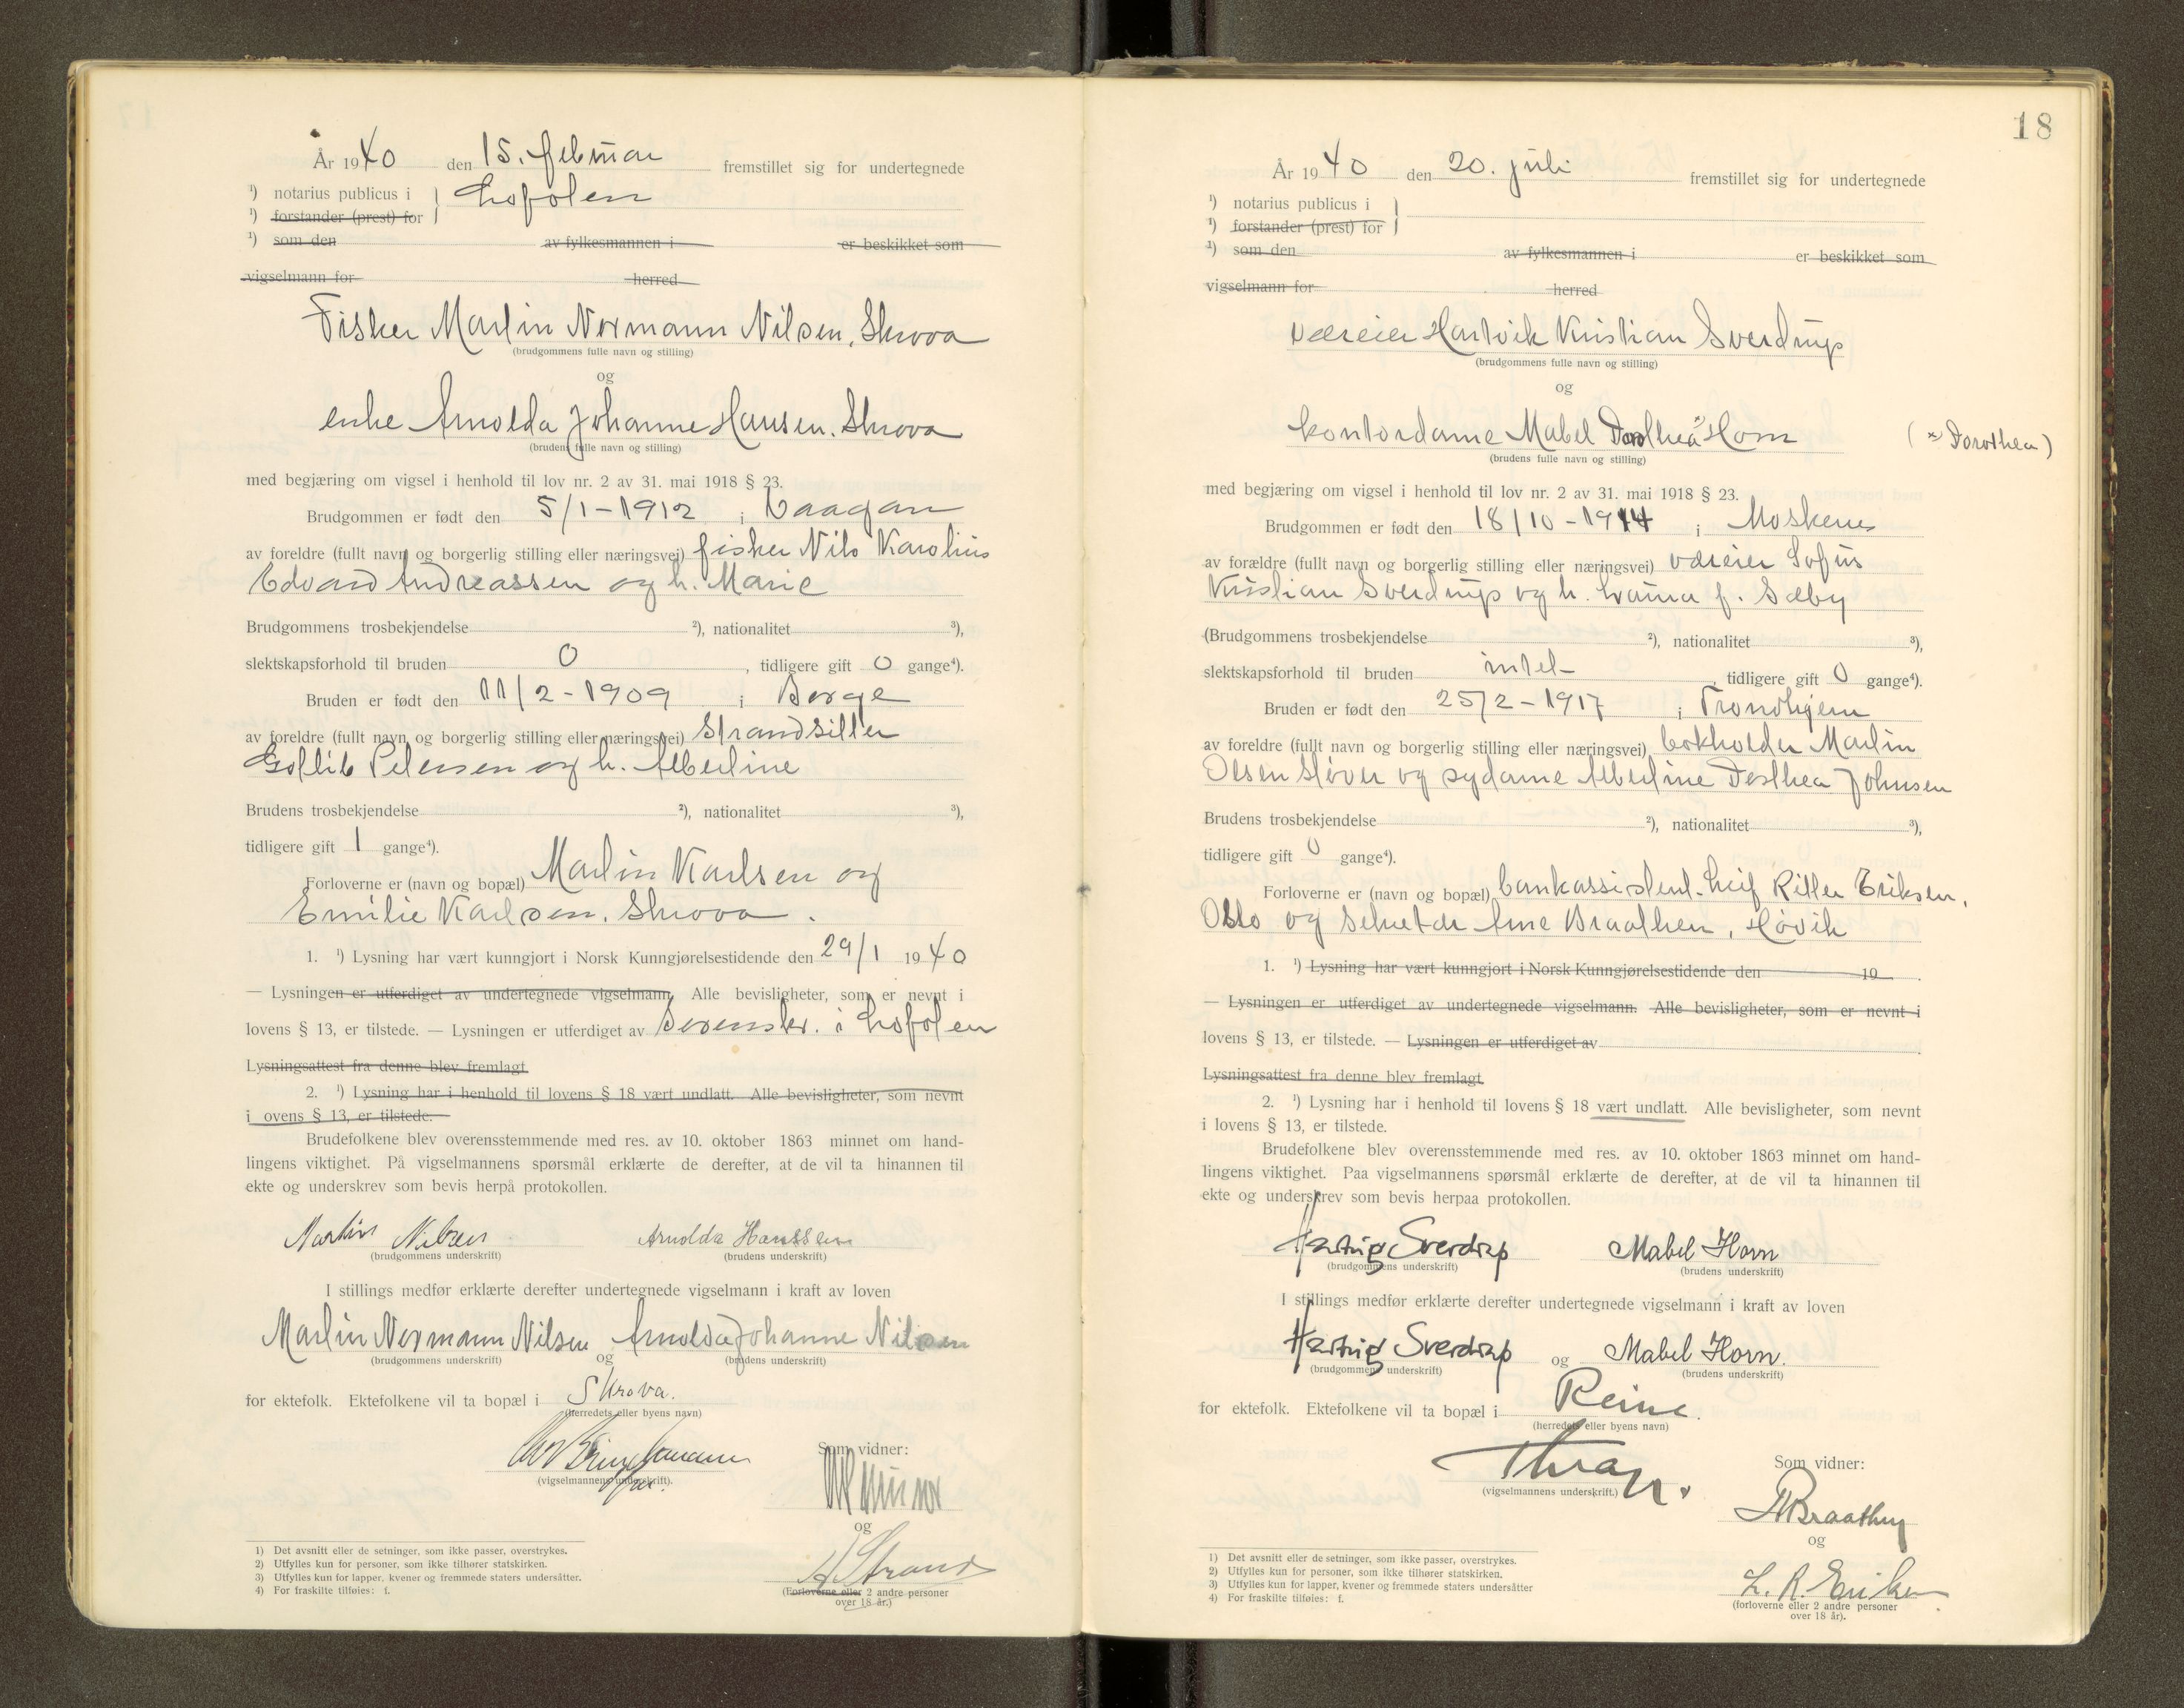 År 1940 den 15. februar fremstillet sig for undertegnede
¹) notarius publicus i } Lofoten
¹) forstander (prest) for
¹) som den av fylkesmannen i er beskikket som
vigselmann for herred
Fisker Martin Normann Nilsen, Skrova
(brudgommens fulle navn og stilling)
og
enke Arnolda Johanne Hansen. Skrova
(brudens fulle navn og stilling)
med begjæring om vigsel i henhold til lov nr. 2 av 31. mai 1918 § 23.
Brudgommen er født den 5/1-1912 i Vaagan
av foreldre (fullt navn og borgerlig stilling eller næringsvei) fisker Nils Karolius
Edvard Andreassen og h. Marie
Brudgommens trosbekjendelse ²), nationalitet ³),
slektskapsforhold til bruden 0, tidligere gift 0 gange⁴).
Bruden er født den 11/2-1909 i Borge
av foreldre (fullt navn og borgerlig stilling eller næringsvei) strandsitter
Gotlib Petersen og h. Albertine
Brudens trosbekjendelse ²), nationalitet ³),
tidligere gift 1 gange⁴).
Forloverne er (navn og bopæl) Martin Karlsen og
Emilie Karlsen. Skrova.
1. ¹) Lysning har vært kunngjort i Norsk Kunngjørelsestidende den 29/1 1940
— Lysningen er utferdiget av undertegnede vigselmann. Alle bevisligheter, som er nevnt i
lovens § 13, er tilstede. — Lysningen er utferdiget av Sorenskr. i Lofoten
Lysningsattest fra denne blev fremlagt.
2. ¹) Lysning har i henhold til lovens § 18 vært undlatt. Alle bevisligheter, som nevnt
i ovens § 13, er tilstede.
Brudefolkene blev overensstemmende med res. av 10. oktober 1863 minnet om hand-
lingens viktighet. På vigselmannens spørsmål erklærte de derefter, at de vil ta hinannen til
ekte og underskrev som bevis herpå protokollen.
Martin Nilsen Arnolda Hanssen
(brudgommens underskrift) (brudens underskrift)
I stillings medfør erklærte derefter undertegnede vigselmann i kraft av loven
Martin Normann Nilsen og Arnolda Johanne Nilsen
(brudgommens underskrift) (brudens underskrift)
for ektefolk. Ektefolkene vil ta bopæl i Skrova.
(herredets eller byens navn)
Som vidner:
(vigselmannens underskrift).
og
A Strand
(Forloverne eller 2 andre personer
over 18 år.)
1) Det avsnitt eller de setninger, som ikke passer, overstrykes.
2) Utfylles kun for personer, som ikke tilhører statskirken.
3) Utfylles kun for lapper, kvener og fremmede staters undersåtter.
4) For fraskilte tilføies: f.
18
År 1940 den 20. juli fremstillet sig for undertegnede
¹) notarius publicus i }
¹) forstander (prest) for
¹) som den av fylkesmannen i er beskikket som
vigselmann for herred
væreier Hartvik Kristian Sverdrup
(brudgommens fulle navn og stilling)
og
kontordame Mabel Dorothea ˣ Horn (ˣ Dorothea)
(brudens fulle navn og stilling)
med begjæring om vigsel i henhold til lov nr. 2 av 31. mai 1918 § 23.
Brudgommen er født den 18/10-1914 i Moskenes
av forældre (fullt navn og borgerlig stilling eller næringsvei) væreier Sofus
Kristian Sverdrup og h. Laura f. Sæby
(Brudgommens trosbekjendelse ²), nationalitet ³),
slektskapsforhold til bruden intet, tidligere gift 0 gange⁴).
Bruden er født den 25/2-1917 i Trondhjem
av foreldre (fullt navn og borgerlig stilling eller næringsvei) bokholder Martin
Olsen Høver og sydame Albertine Dorthea Johnsen
Brudens trosbekjendelse ²), nationalitet ³),
tidligere gift 0 gange⁴).
Forloverne er (navn og bopæl) bankassistent Leif Ritter Eriksen,
Oslo og sekretær Arne Braathen, Høvik
1. ¹) Lysning har vært kunngjort i Norsk Kunngjørelsestidende den 19 .
— Lysningen er utferdiget av undertegnede vigselmann. Alle bevisligheter, som er nevnt i
lovens § 13, er tilstede. — Lysningen er utferdiget av
Lysningsattest fra denne blev fremlagt.
2. ¹) Lysning har i henhold til lovens § 18 vært undlatt. Alle bevisligheter, som nevnt
i lovens § 13, er tilstede.
Brudefolkene blev overensstemmende med res. av 10. oktober 1863 minnet om hand-
lingens viktighet. Paa vigselmannens spørsmål erklærte de derefter, at de vil ta hinannen til
ekte og underskrev som bevis herpaa protokollen.
Hartvig Sverdrup Mabel Horn
(brudgommens underskrift) (brudens underskrift)
I stillings medfør erklærte derefter undertegnede vigselmann i kraft av loven
Hartvig Sverdrup og Mabel Horn.
(brudgommens underskrift) (brudens underskrift)
for ektefolk. Ektefolkene vil ta bopæl i Reine.
(herredets eller byens navn)
Thrap.
Som vidner:
(vigselmannens underskrift.)
ABraathen
og
L. R. Eriksen
(forloverne eller 2 andre personer
over 18 år).
1) Det avsnitt eller de setninger, som ikke passer, overstrykes.
2) Utfylles kun for personer, som ikke tilhører statskirken.
3) Utfylles kun for lapper, kvener og fremmede staters undersåtter
4) For fraskilte tilføies: f.